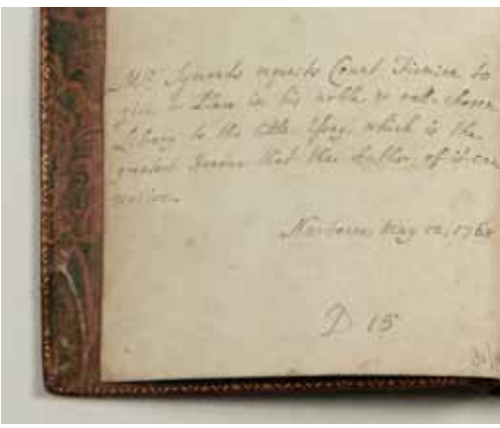 Mr. Symonds requests Count Firmian to
give a place in his noble & well-chosen
Library to this little Essay, which is the
greatest honour that the Author of it can
receive.
May 12, 1768
D 15